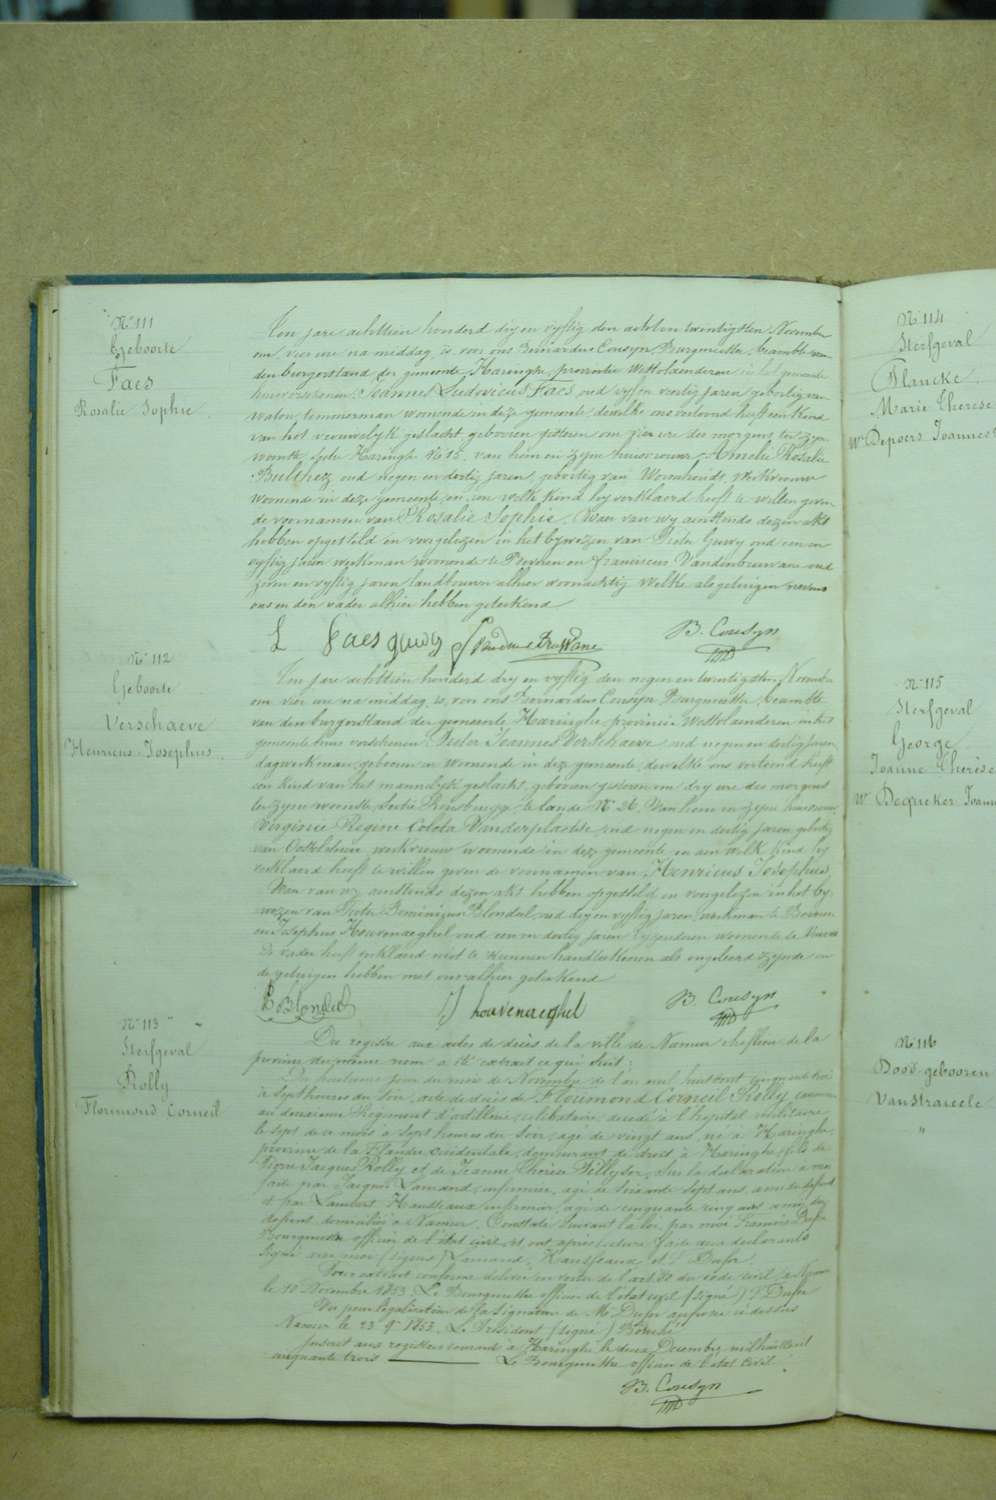 N° 111
Geboorte
Faes
Rosalie Sophie
Ten jare achttien honderd dry en vyftig den achtsten twintigsten November
om vier ure na middag, is voor ons Bernardus Cousyn Burgmeester, beambte van
den burgerstand der gemeente Haringhe, provincie Westvlaenderen in het gemeente
huis verschenen Joannes Ludovicus Faes oud vyf en veertig jaren geboortig van
Watou, timmerman woonende in deze gemeente, dewelke ons vertoond heeft een kind
van het vrouwelyk geslacht, geboren gisteren om vier ure des morgens ter zyner
woonste, sectie Haringhe N° 15, van hem en zyne huisvrouw Amelie Rosalie
oud negen en dertig jaren, geboortig van Woumen, werkvrouw
woonende in deze gemeente, en aen welk kind hy verklaerd heeft te willen geven
de voornamen van Rosalie Sophie. Waer van wy aenstonds dezen akt
hebben opgesteld en voorgelezen in het bywezen van Pieter Guwy oud een en
vyftig jaren werkman woonende te Beveren en Franciscus Vandenbouwane oud
zeven en vyftig jaren landbouwer alhier woonachtig Welke als getuigen nevens
ons en den vader alhier hebben geteekend
L Faes guwy B. Cousyn
N° 112
Geboorte
Verschaeve
Henricus Josephus
Ten jare achttien honderd dry en vyftig den negen en twintigsten November
om vier ure na middag, is voor ons Bernardus Cousyn Burgmeester, beambte
van den burgerstand der gemeente Haringhe provincie Westvlaenderen in het
gemeente huis verschenen Pieter Joannes Verschaeve oud negen en dertig jaren
dagwerkman, geboren en woonende in deze gemeente, dewelke ons vertoond heeft
een kind van het mannelyk geslacht, geboren gisteren om dry ure des morgens
ter zyner woonste Sectie Rousbrugge te lande N° 26, van hem en zyne huisvrouw
Virginie Regine Coleta Vanderplaetse, oud negen en dertig jaren geboortig
van Oostvleteren werkvrouw woonende in deze gemeente en aen welk kind hy
verklaerd heeft te willen geven de voornamen van Henricus Josephus
Waer van wy aenstonds dezen akt hebben opgesteld en voorgelezen in het by
wezen van Pieter Dominicus Blondeel oud dry en vyftig jaren, werkman te Beveren
en Josephus Houvenaeghel oud een en dertig jaren woonende te
De vader heeft verklaerd niet te kunnen handteekenen als ongeleerd zynde en
de getuigen hebben met ons alhier geteekend
P Blondeel J houvenaeghel B. Cousyn
N° 113
Sterfgeval
Rolly
Florimond Corneil
Du registre aux actes de décès de la ville de Namur chef-lieu de la
province du même nom a été extrait ce qui suit:
Du huitième jour du mois de Novembre de l'an mil huit cent cinquante trois
à sept heures du soir, acte de décès de Floumond Corneil Rolly canonnier
au deuxième Régiment d'artillerie, célibataire, décédé à l'hôpital militaire
le sept de ce mois à sept heures du soir, agé de vingt ans, né à Haringhe
province de la Flandre occidentale, demeurant de droit à Haringhe, fils de
Pierre Jacques Rolly et de Jeanne Thérèse Willyser. Sur la déclaration à nous
faite par Jacques Lamand, infirmier, agé de soixante sept ans, ami du défunt
et par Lambert Hansteaux infirmier, agé de cinquante cinq ans ami du
défunt domiciliés à Namur. Constaté suivant la loi, par moi François Dufer
Bourgmestre officier de l'état civil, et ont après lecture faite aux déclarants
signé avec moi (signés) Lamand, Hansteaux et F. Dufer.
Pour extrait conforme délivré en vertu de l'art. 80 du code civil à Namur
le 10 Décembre 1853 Le Bourgmestre officier de l'état civil (Signé) F. Dufer
Vu pour légalisation de la signature de Mr. Dufer apposée ci dessus
Namur le 23 9bre 1853. Le Président (signé)
Inscrit aux registres courants à Haringhe le deux Decembre mil huit cent
cinquante trois Le Bourgmestre officier de l'état civil.
B. Cousyn
N° 114
Sterfgeval
Plancke
Marie Therese
We Depoers Joannes
N° 115
Sterfgeval
George
Joanne Therèse
We Dequeker Joann
N° 116
Dood geboren
Vanstraceele
"